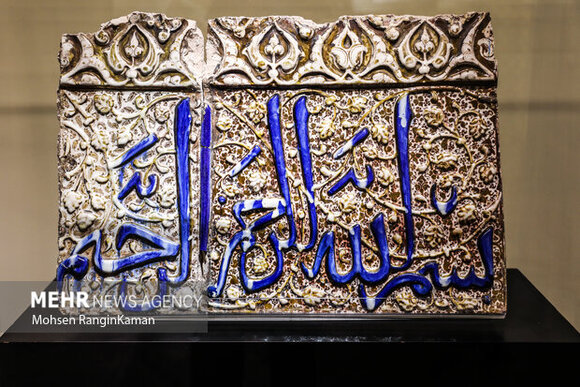 بسم الله الرحمن الرحیم
MEHR NEWS AGENCY
Mohsen RanginKaman